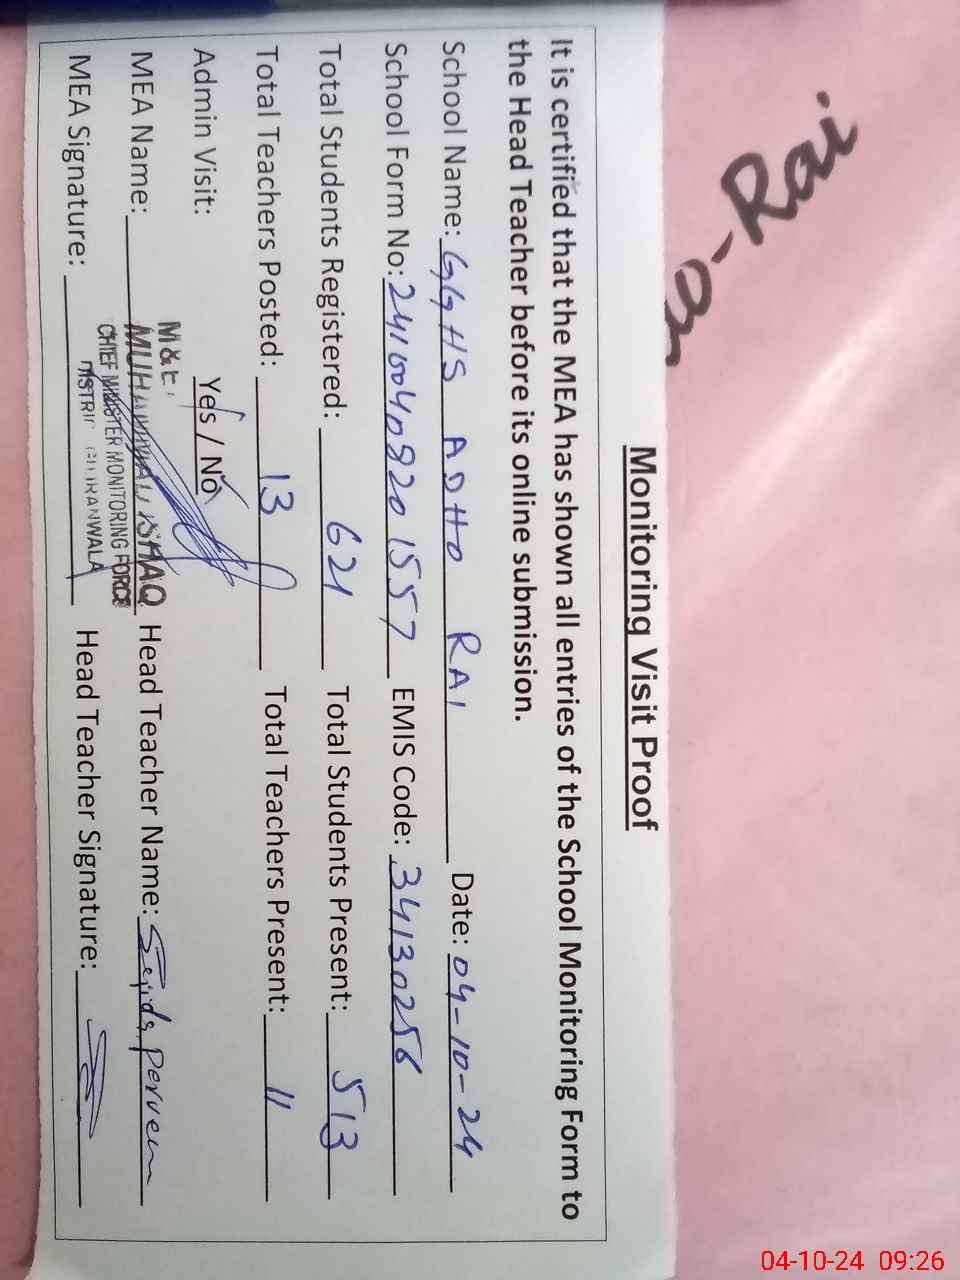 o-Rai
Monitoring Visit Proof
It is certified that the MEA has shown all entries of the School Monitoring Form to
the Head Teacher before its online submission.
School Name: GGHS ADHO RAI Date: 04-10-24
School Form No: 24100408201557 EMIS Code: 34130256
Total Students Registered: 621 Total Students Present: 513
Total Teachers Posted: 13 Total Teachers Present: 11
Admin Visit: Yes / No
M & E
MEA Name: MUHAMMAD ISHAQ Head Teacher Name: Sajida Perveen
CHIEF MINISTER MONITORING FORCE
DISTRICT GUJRANWALA
MEA Signature: Head Teacher Signature:
04-10-24 09:26